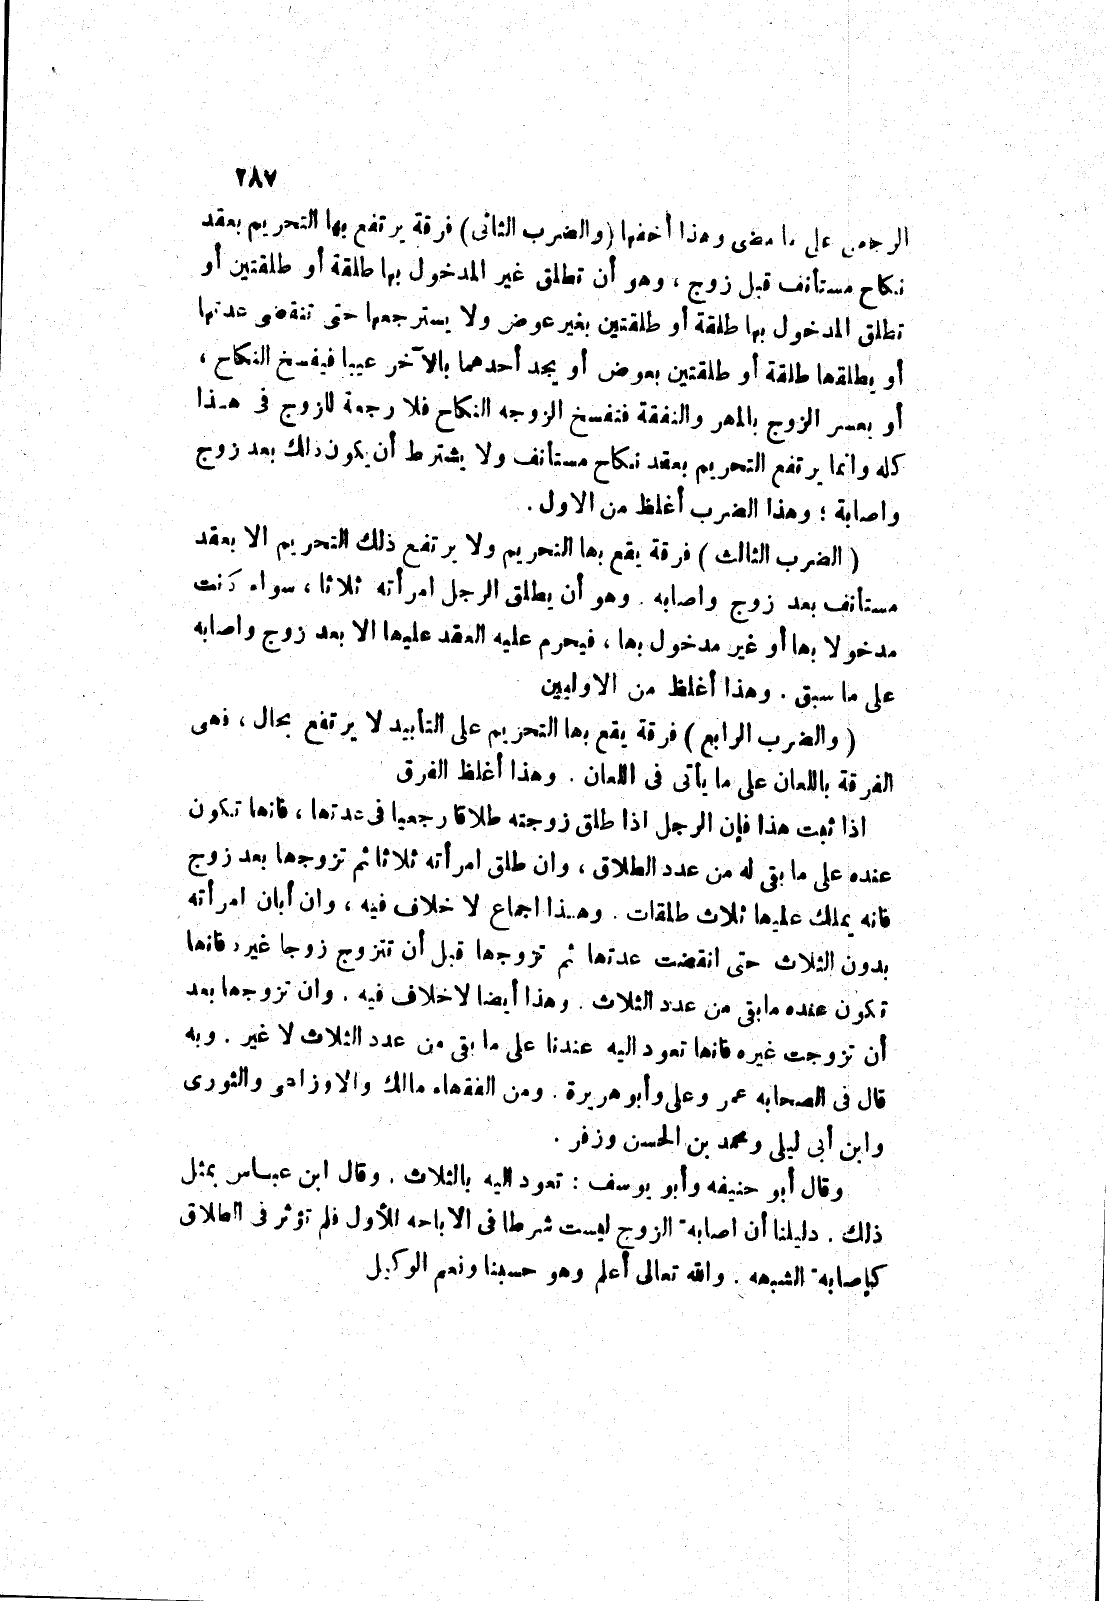 ٢٨٧
الرجعى على ما مضى وهذا أخفها (والضرب الثانى) فرقة يرتفع بها التحريم بعقد
نكاح مستأنف قبل زوج ، وهو أن تطلق غير المدخول بها طلقة أو طلقتين أو
تطلق المدخول بها طلقة أو طلقتين بغير عوض ولا يسترجعها حتى تنقضى عدتها
أو يطلقها طلقة أو طلقتين بعوض أو يجد أحدهما بالآخر عيبا فيفسخ النكاح ،
أو يعسر الزوج بالمهر والنفقة فتفسخ الزوجه النكاح فلا رجعة للزوج فى هـذا
كله وانما يرتفع التحريم بعقد نكاح مستأنف ولا يشترط أن يكون ذلك بعد زوج
واصابة ؛ وهذا الضرب أغلظ من الاول .
( الضرب الثالث ) فرقة يقع بها التحريم ولا يرتفع ذلك التحريم الا بعقد
مستأنف بعد زوج واصابه . وهو أن يطلق الرجل امرأته ثلاثا ، سواء كانت
مدخولا بها أو غير مدخول بها ، فيحرم عليه العقد عليها الا بعد زوج واصابه
على ما سبق . وهذا أغلظ من الاوليين
( والضرب الرابع ) فرقة يقع بها التحريم على التأبيد لا يرتفع بحال ، فهى
الفرقة باللعان على ما يأتى فى اللعان . وهذا أغلظ الفرق
اذا ثبت هذا فإن الرجل اذا طلق زوجته طلاقا رجعيا فى عدتها ، فانها تكون
عنده على ما بقى له من عدد الطلاق ، وان طلق امرأته ثلاثا ثم تزوجها بعد زوج
فانه يملك عليها ثلاث طلقات . وهـذا اجماع لا خلاف فيه ، وان أبان امرأته
بدون الثلاث حتى انقضت عدتها ثم تزوجها قبل أن تتزوج زوجا غيره فانها
تكون عنده مابقى من عدد الثلاث . وهذا أيضا لا خلاف فيه . وان تزوجها بعد
أن تزوجت غيره فانها تعود اليه عندنا على ما بقى من عدد الثلاث لا غير . وبه
قال فى الصحابه عمر وعلى وأبو هريرة . ومن الفقهاء مالك والاوزاعى والثورى
وابن أبى ليلى ومحمد بن الحسن وزفر .
وقال أبو حنيفه وأبو يوسف : تعود اليه بالثلاث . وقال ابن عبـاس بمثل
ذلك . دليلنا أن اصابه الزوج ليست شرطا فى الاباحه للأول فلم تؤثر فى الطلاق
كإصابه الشبهه . والله تعالى أعلم وهو حسبنا ونعم الوكيل